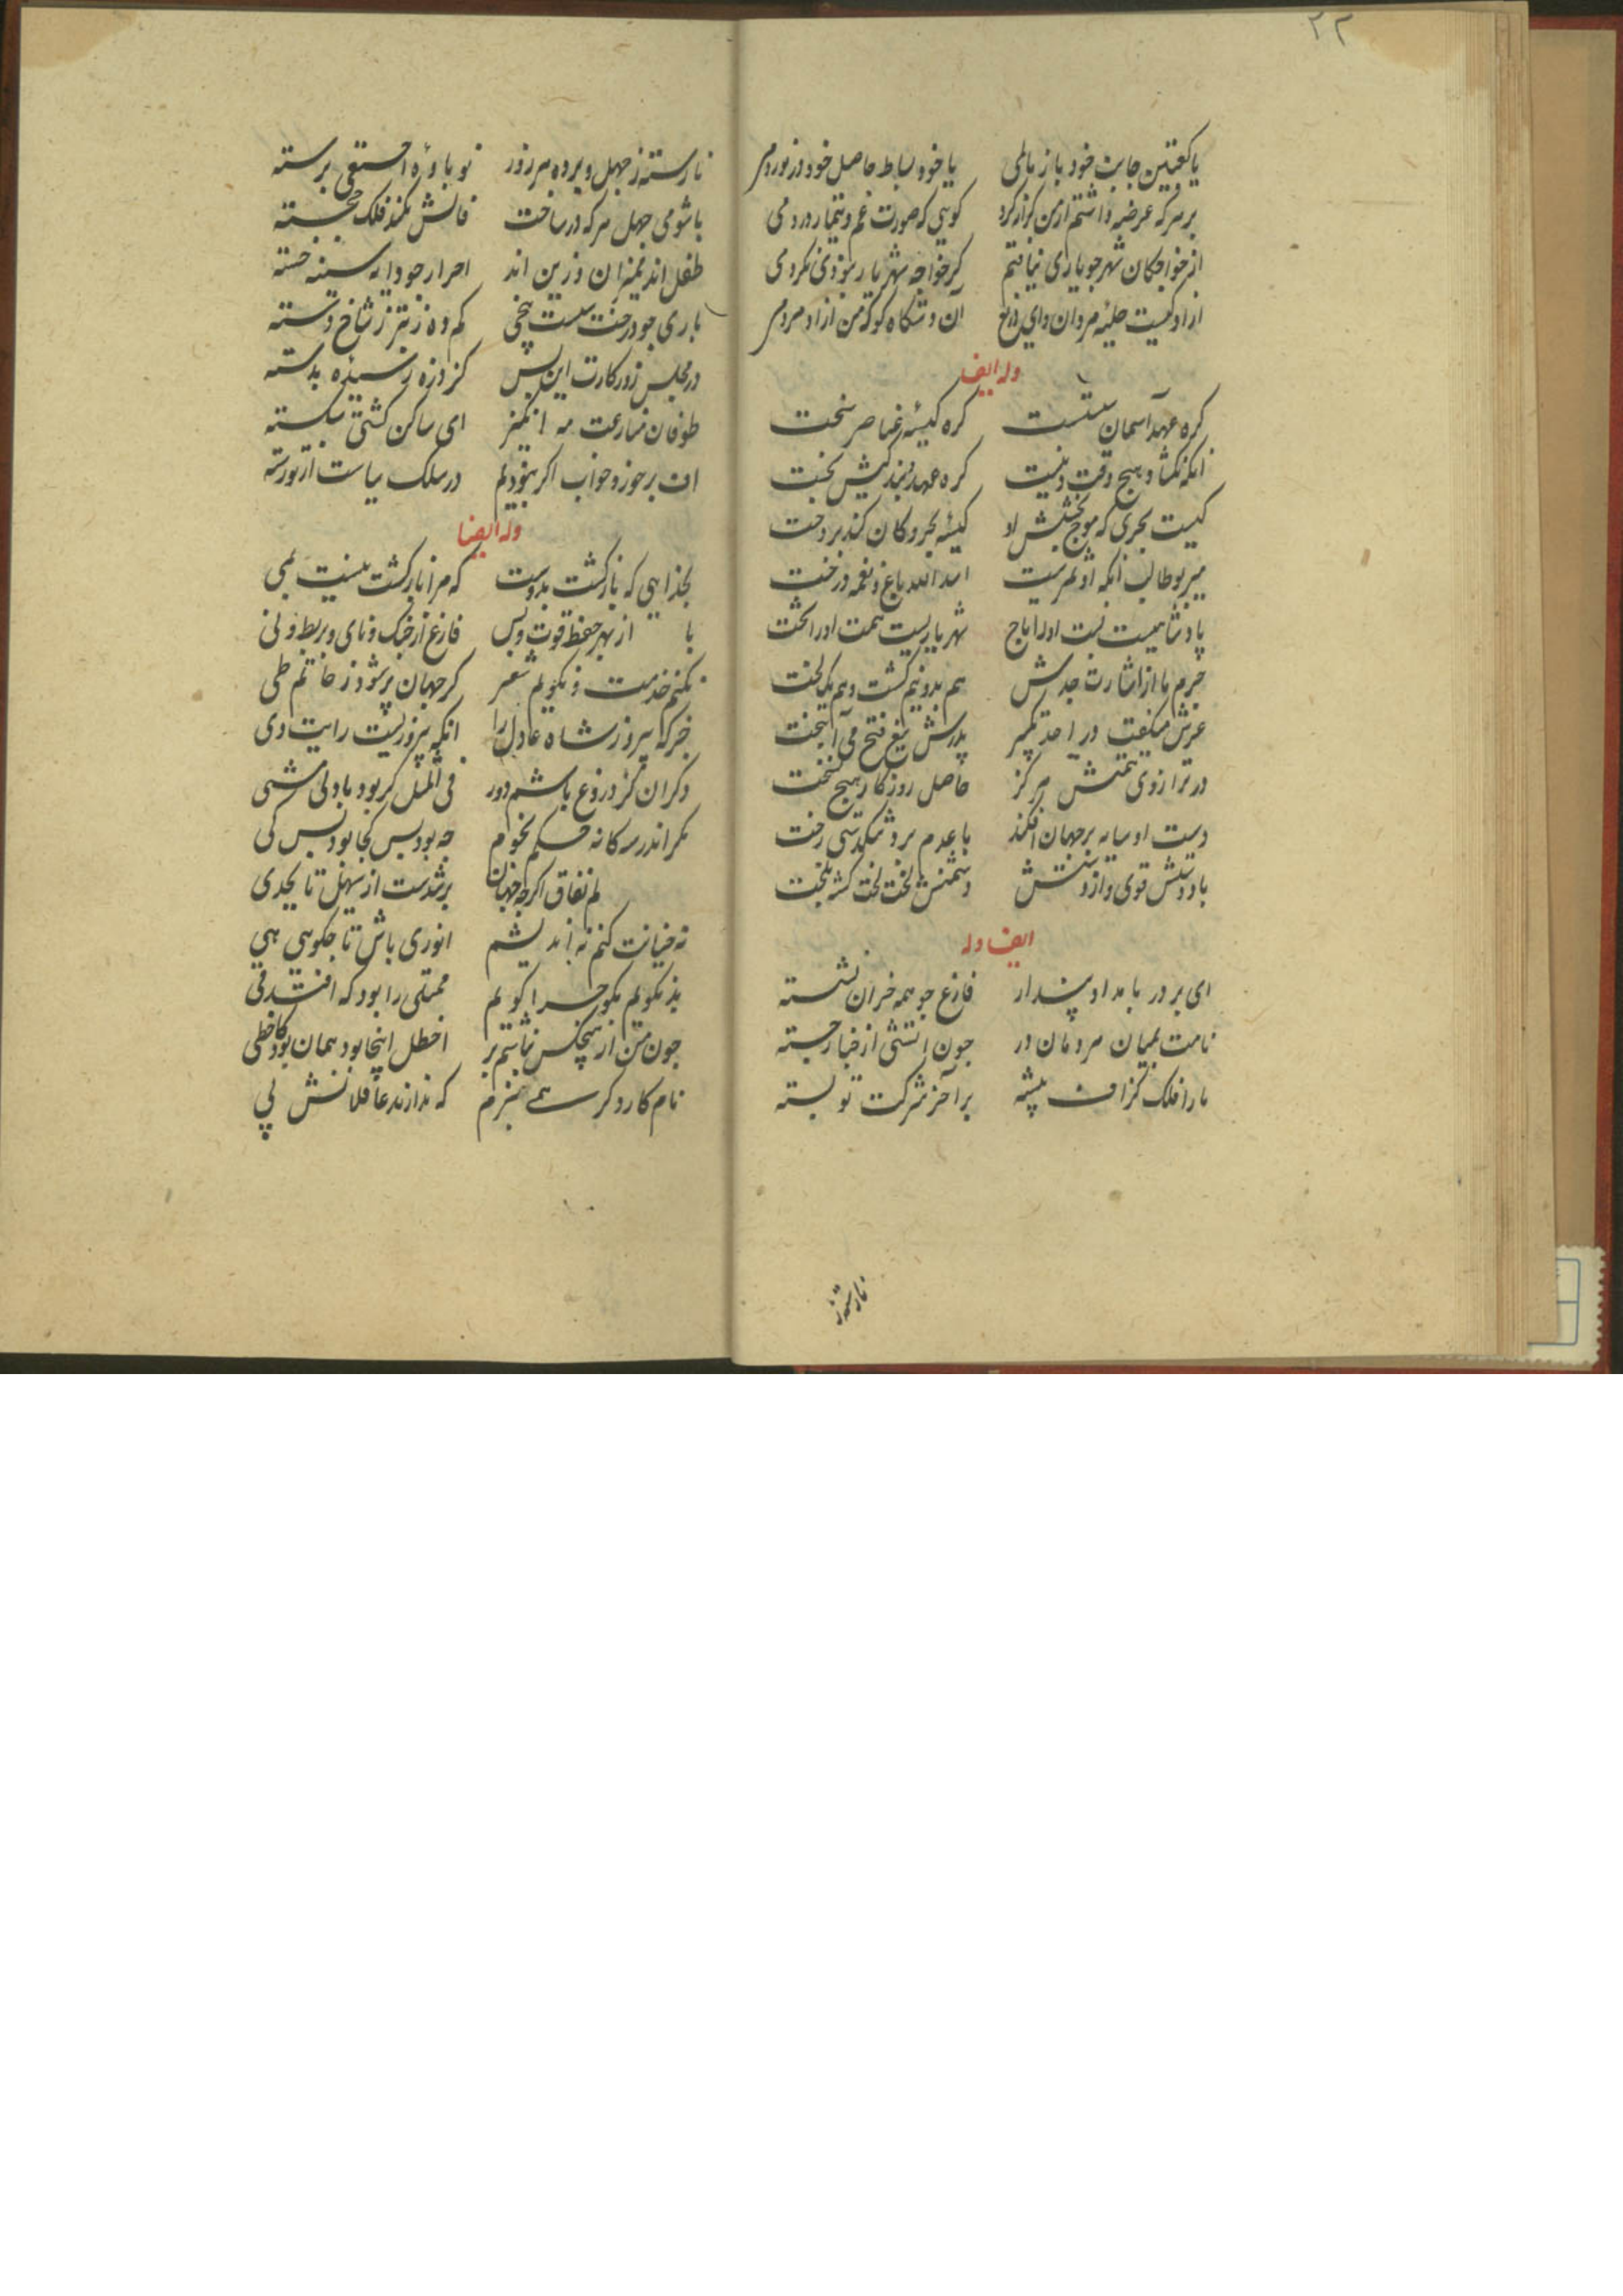 ۲۲
یا کعبتین جابت خود باز مالمی یا خود بساط حاصل خود درنوردمی
بر هر که عرضه داشتم از من کرانه کرد کویی که صورت غم و تیمار و دردمی
از خواجکان شهر چو یاری نیافتم کر خواجه شهریار نبودی نکردمی
آن دستکاه کو که من آزاد مردمی
وله ایضا
کره عهد آسمان سستست کره کیسه عناصر سخت
انکه نکشاد هیچ وقت و نبست کره عهد و بند کیش بخت
کیست بحری که موج بخشش او کیسه بحر و کان کند پردخت
میر بوطالب انکه او ثمرست اسد الله باغ و نعمه درخت
پادشاهیست نسبت او را تاج شهریاریست همت او را تخت
جرم ماه از اشارت جدش هم بدو نیم کشت و هم یک لخت
عرش میکفت در احد تکبیر پدرش تیغ فتح می آهیخت
در ترازوی همتش هرکز حاصل روزکار هیچ نسخت
دست او سایه بر جهان افکند با عدم برد تنکدستی رخت
باد دستش قوی و از دستش دشمنش لخت لخت کشته بلخت
ایضا وله
ای بر در بامداد پندار فارغ چو همه خران نشسته
نامت بمیان مردمان در چون آتشی از خیار جسته
ما را فلک کزاف پیشه بر آخر شرکت تو بسته
نارسته ز
نارسته ز جهل و برده هر روز نو باوهٔ احمقی برسته
با شومی جهل هر که در ساخت فالش نکند فلک خجسته
طفل اند احرار جو دایه سینه خسته
باری چو درخت سست بیخی کم ده ز تبر ز شاخ دسته
در مجلس روزکارت این بس کز درزه رسیده بدسته
طوفان منازعت مه انکیز ای ساکن کشتی شکسته
در سلک
وله ایضا
بخدایی که بازکشت بدوست که مرا بازکشت نیست بمی
با از بهر حفظ قوت و بس فارغ از چنک و نای و بربط و نی
نکنم خدمت و نکویم شعر کر جهان پر شود ز حاتم طی
جز که پیروز شاه عادل را انکه پیروزیست رایت وی
دکر آن کز دروغ باشم دور فی المثل کر بود بادنی شی
مکر اندر سه کانه حکم نجوم چه بود پس کجا بود پس کی
لم نفاق اکر چه جهان بر شدست از سهیل تا بجدی
نه خیانت کنم نه اندیشم انوری باش تا چکویی هی
بد نکویم نکو چرا کویم ممتلی را بود که افتد قی
چون من از هیچکس نباشم بر اخطل اینجا بود همان بود کاخطی
نام کار دکر همی نبرم که ندارند عاقلانش پی